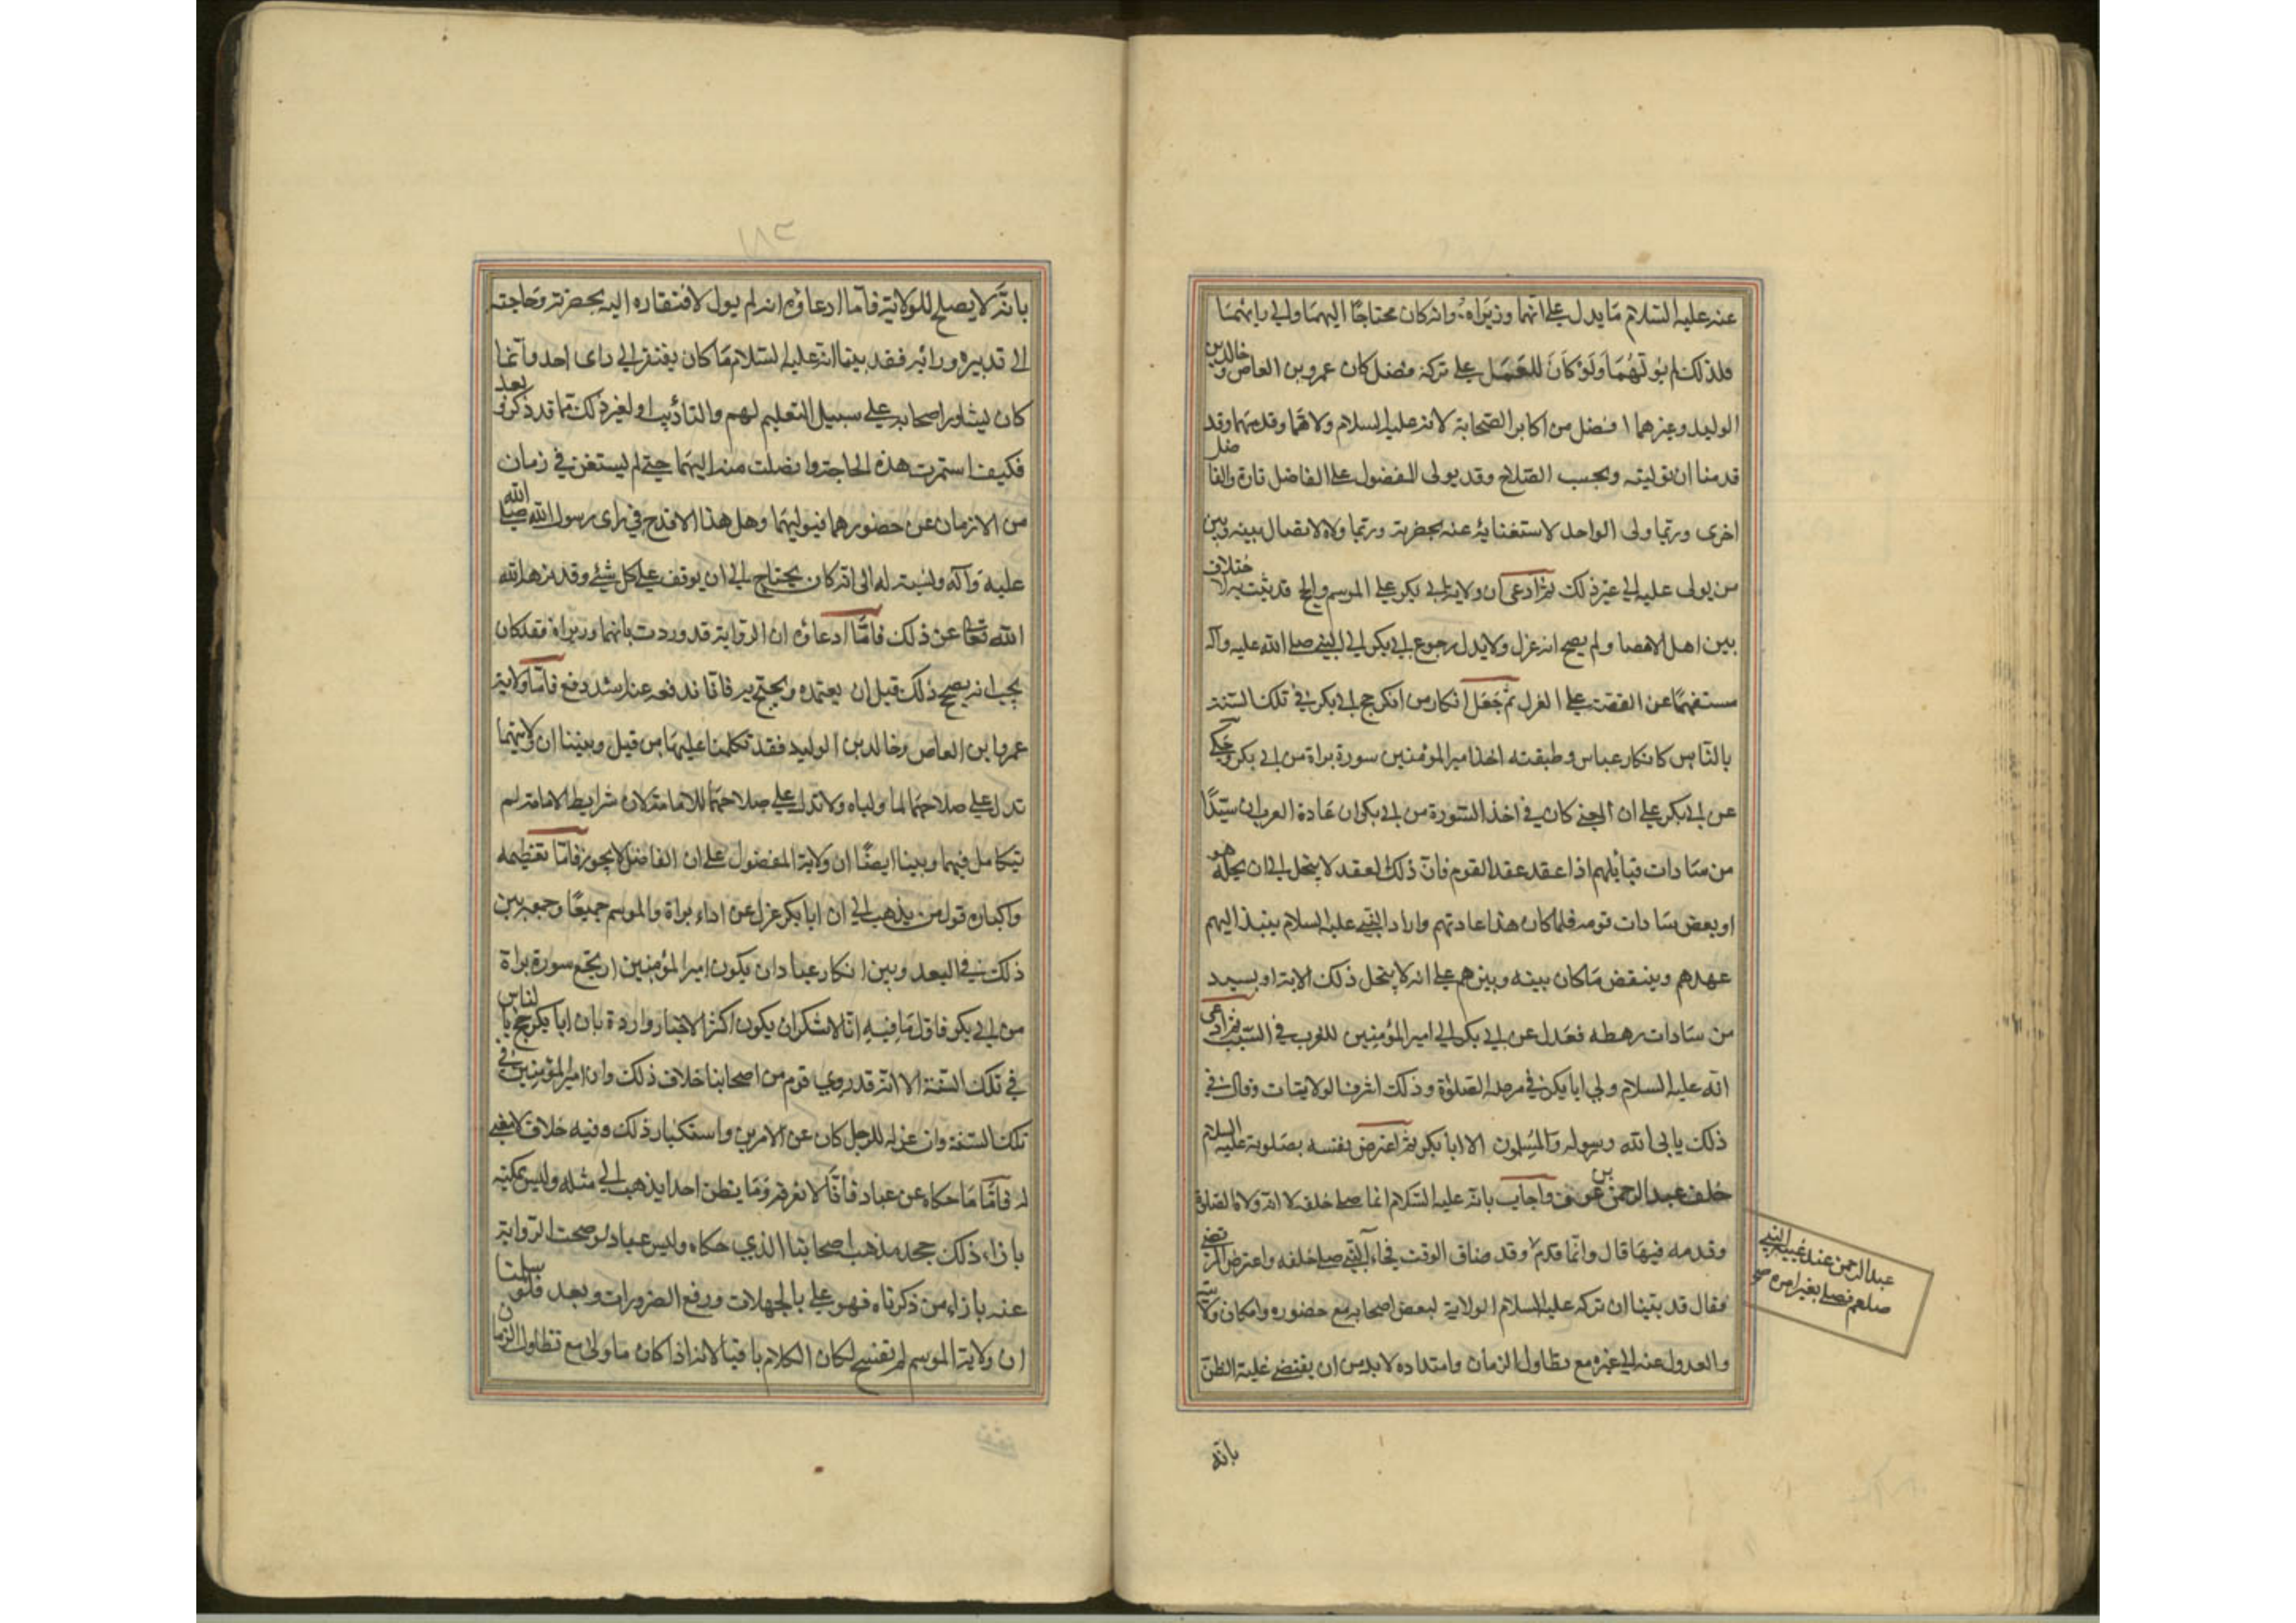 عنه عليه السلام ما يدل على انهما وزيراه وانه كان محتاجا اليهما والى رايهما
فلذلك لم يولهما ولو كان للعمل على تركه فضل كان عمرو بن العاص و خالد بن
الوليد وغيرهما افضل من اكابر الصحابة لانه عليه السلام ولاهما وقدمهما وقد
قدمنا ان توليته وبحسب الصلاح وقد يولى المفضول على الفاضل تارة والفا ضل
اخرى وربما ولى الواحد لاستغنايه عنه بحضرته وربما ولاه لاتصال بينه وبين
من يولى عليه الى غير ذلك ثم ادعى ان ولاية ابى بكر على الموسم والحج قد ثبت بلا ختلاف
بين اهل الاخبار ولم يصح انه عزل ولا يدل رجوع ابى بكر الى النبى صلى الله عليه وآله
مستفهما عن القصة على العزل ثم جعل انكار من انكر حج ابى بكر فى تلك السنة
بالناس كانكار عباس وطبقته اخذ امير المؤمنين سورة براة من ابى بكر وحكى
عن ابى على ان المعنى كان فى اخذ السورة من ابى بكر ان عادة العرب ان سيدا
من سادات قبايلهم اذا عقد عقد القوم فان ذلك العقد لا ينحل الى ان يحله هو
او بعض سادات قومه فلما كان هذا عادتهم واراد النبى عليه السلام ينبذ اليهم
عهدهم وينقض ما كان بينه وبينهم على انه لا ينحل ذلك الا به او بسيد
من سادات رهطه فعدل عن ابى بكر الى امير المؤمنين للقرب فى النسب ثم ادعى
انه عليه السلام ولى ابا بكر فى مرضه الصلوة وذلك اشرف الولايات وقال فى
ذلك يابى الله ورسوله والمسلمون الا ابا بكر ثم اعترض نفسه بصلوته عليه السلام
خلف عبد الرحمن بن عوف واجاب بانه عليه السلام انما صلى خلفه لا انه ولاه الصلوة
وقدمه فيها قال وانما قدم عبد الرحمن عند غيبة النبى
صلعم فصلى بغير امره صح
وقد ضاق الوقت فجاء النبى صلى خلفه واعترض المرتضى
فقال قد بينا ان تركه عليه السلام الولاية لبعض اصحابه مع حضوره وامكان ولايته
والعدول عنه الى غيره مع تطاول الزمان وامتداده لا بد من ان يقتضى غلبة الظن
بانه
١٨٣
بانه لا يصلح للولاية فاما ادعاؤه انه لم يول لافتقاره اليه بحضرته وحاجته
الى تدبيره ورائه فقد بينا انه عليه السلام ما كان يفتقر الى راى احد وانما
كان يشاور اصحابه على سبيل التعليم لهم والتاديب او لغير ذلك مما قد ذكر وبعد
فكيف استمرت هذه الحاجة واتصلت منه اليهما حتى لم يستغن فى زمان
من الازمان عن حضورهما فيوليهما وهل هذا الا قدح فى راى رسول الله صلى الله
عليه وآله ونسبته له الى انه كان يحتاج الى ان يوقف على كل شئ وقد نزهه الله
الله تعالى عن ذلك فاما ادعاؤه ان الرواية قد وردت بانهما وزيراه فقد كان
يجب ان يصحح ذلك قبل ان يعتمده ويحتج به فانا ندفعه عنه اشد دفع فاما ولاية
عمرو ابن العاص وخالد بن الوليد فقد تكلمنا عليها من قبل وبينا ان ولايتهما
تدل على صلاحهما لما ولياه ولا تدل على صلاحهما للامامة لان شرايط الامامة لم
تتكامل فيهما وبينا ايضا ان ولاية المفضول على ان الفاضل لا يجوز فاما تعظيمه
واكباره قول من يذهب الى ان ابا بكر عزل عن اداء براة والموسم جميعا وجمعه بين
ذلك فى البعد وبين انكار عباد ان يكون امير المؤمنين ارتجع سورة براة
من ابى بكر فاول ما فيه انا لا ننكر ان يكون اكثر الاخبار واردة بان ابا بكر حج بالناس
فى تلك السنة الا انه قد روى قوم من اصحابنا خلاف ذلك وان امير المؤمنين فى
تلك السنة وان عزله للرجل كان عن الامرين واستكبار ذلك وفيه خلاف لا معنى
له فاما ما حكاه عن عباد فانا لا نعرفه وما يظن احدا يذهب الى مثله وليس يمكنه
بازاء ذلك جحد مذهب اصحابنا الذي حكاه وليس عباد لو صحت الرواية
عنه بازاء من ذكرناه فهو على بالجهلات ورفع الضرورات وبعد فلو سلمنا
ان ولاية الموسم لم تفسخ لكان الكلام باقيا لانه اذا كان ما ولى مع تطاول الزمان